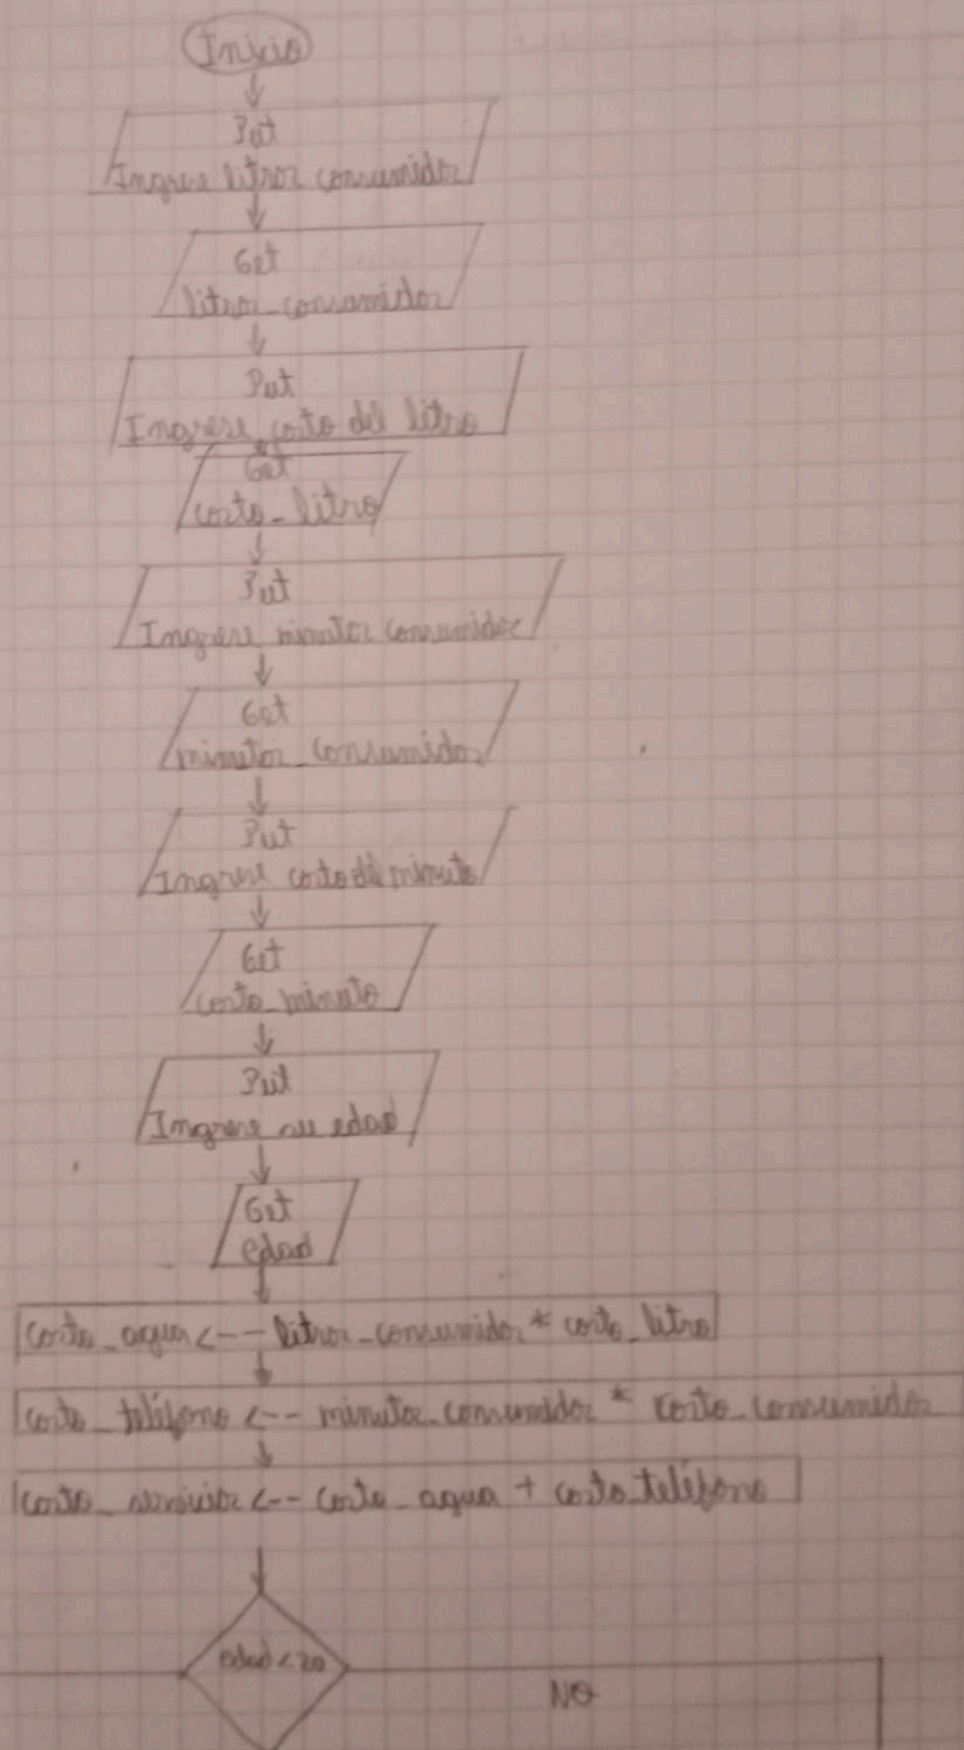 Inicio
Put
Ingrese litros consumidos
Get
litros_consumidos
Put
Ingrese costo del litro
Get
costo_litro
Put
Ingrese minutos consumidos
Get
minutos_consumidos
Put
Ingrese costo del minuto
Get
costo_minuto
Put
Ingrese su edad
Get
edad
costo_agua <-- litros_consumidos * costo_litro
costo_teléfono <-- minutos_consumidos * costo_consumidos
costo_servicios <-- costo_agua + costo_teléfono
edad < 20
NO